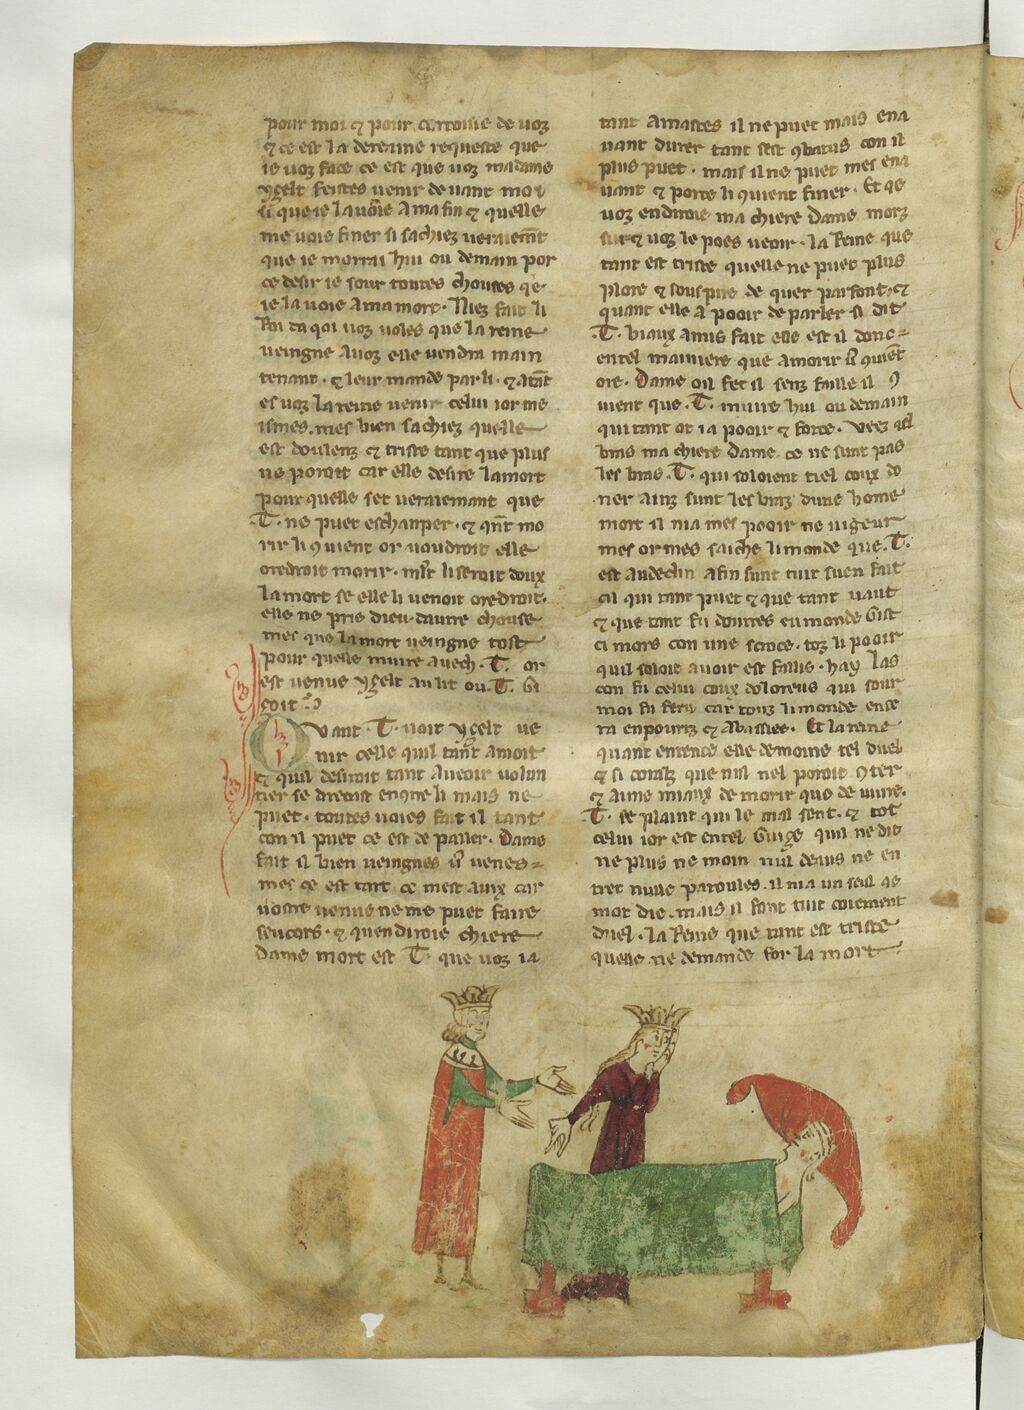 pour moi ⁊ pour cortoisie de uoz
⁊ ce est la dereaine requeste que
ie uoz face ce est que uoz madame
ygelt feistes uenir deuant moi
si que ie la uoie a ma fin ⁊ quelle
me uoie finer si sachiez ueraiemēt
que ie morrai hui ou demain por
ce desir ie sour toutes chouses qe
ie la uoie a ma mort. Niez fait li
Roi da qoi uoz uoles que la reine
ueingne auoz elle uendra main
tenant. ⁊ leur mande par li. ⁊ atāt
es uoz la reine uenir celui ior me
ismes. mes bien sachiez quelle
est doulenz ⁊ triste tant que plus
ne poroit car elle desire la mort
pour quelle set ueraiemant que
.T. ne puet eschanper. ⁊ qnt mo
rir li ꝯuient or uoudroit elle
oredroit morir. mlt li seroit doux
la mort se elle li uenoit oredroit.
elle ne prie dieu dautre chouse
mes que la mort ueingne tost
pour quelle muire auech .T. or
est uenue ygelt au lit ou .T. Gi
soit
Quant .T. uoit ygelt ue
nir celle quil tant amoit
⁊ quil desiroit tant aueoir uolun
tier se drecast encōtre li mais ne
puet. toutes uoies fait il tant
con il puet ce est de paller. Dame
fait il bien ueingnes uꝰ uenes
mes ce est tart ce mest auix car
uostre uenue ne me puet faire
secors. ⁊ quen diroie chiere
Dame mort est .T. que uoz ia
tant amastes il ne puet mais ena
uant durer tant sest ꝯbatus con il
plus puet. mais il ne puet mes ena
uant ⁊ porce li ꝯuient finer. Et qe
uoz en diroie ma chiere dame morz
sui ⁊ uoz le poes ueoir. la Reine que
tant est triste quelle ne puet plus
plore ⁊ souspire de quer parfont. ⁊
quant elle a pooir de parler si dit
.T. biaux amis fait elle est il donc
entel maniere que a morir uꝰ ꝯuiēt
ore. Dame oil fet il senz faille il ꝯ
uient que .T. muire hui ou demain
qui tant ot ia pooir ⁊ force. Veez qel
bras ma chiere dame ce ne sunt pas
les bras .T. qui soloient tiel coux do
ner ainz sunt les braz dune home
mort il nia mes pooir ne uigeur
mes or mes saiche li monde que .T.
est au declin a fin sunt tuit suen fait
cil qui tant puet ⁊ que tant uaut
⁊ que tant fu doutres eu monde Gist
ci mors con une sonce. toz li pooir
quil soloit auoir est fallis. hay las
con fu celui coux doloreus qui sour
moi fu feru car touz li monde ense
ra enpouriz ⁊ abassiez. Et la reine
quant entence elle demoine tel duel
⁊ si coralz que nul nel poroit ꝯter
⁊ aime miaux de morir que de uiure.
.T. se plaint qui le mal sent. ⁊ tot
celui ior est entel Guise quil ne dit
ne plus ne moin nul deaus ne en
tret nulle paroules. il nia un seul qe
mot die. mais il font tuit coiement
duel. la Reine que tant est triste
quelle ne demande for la mort